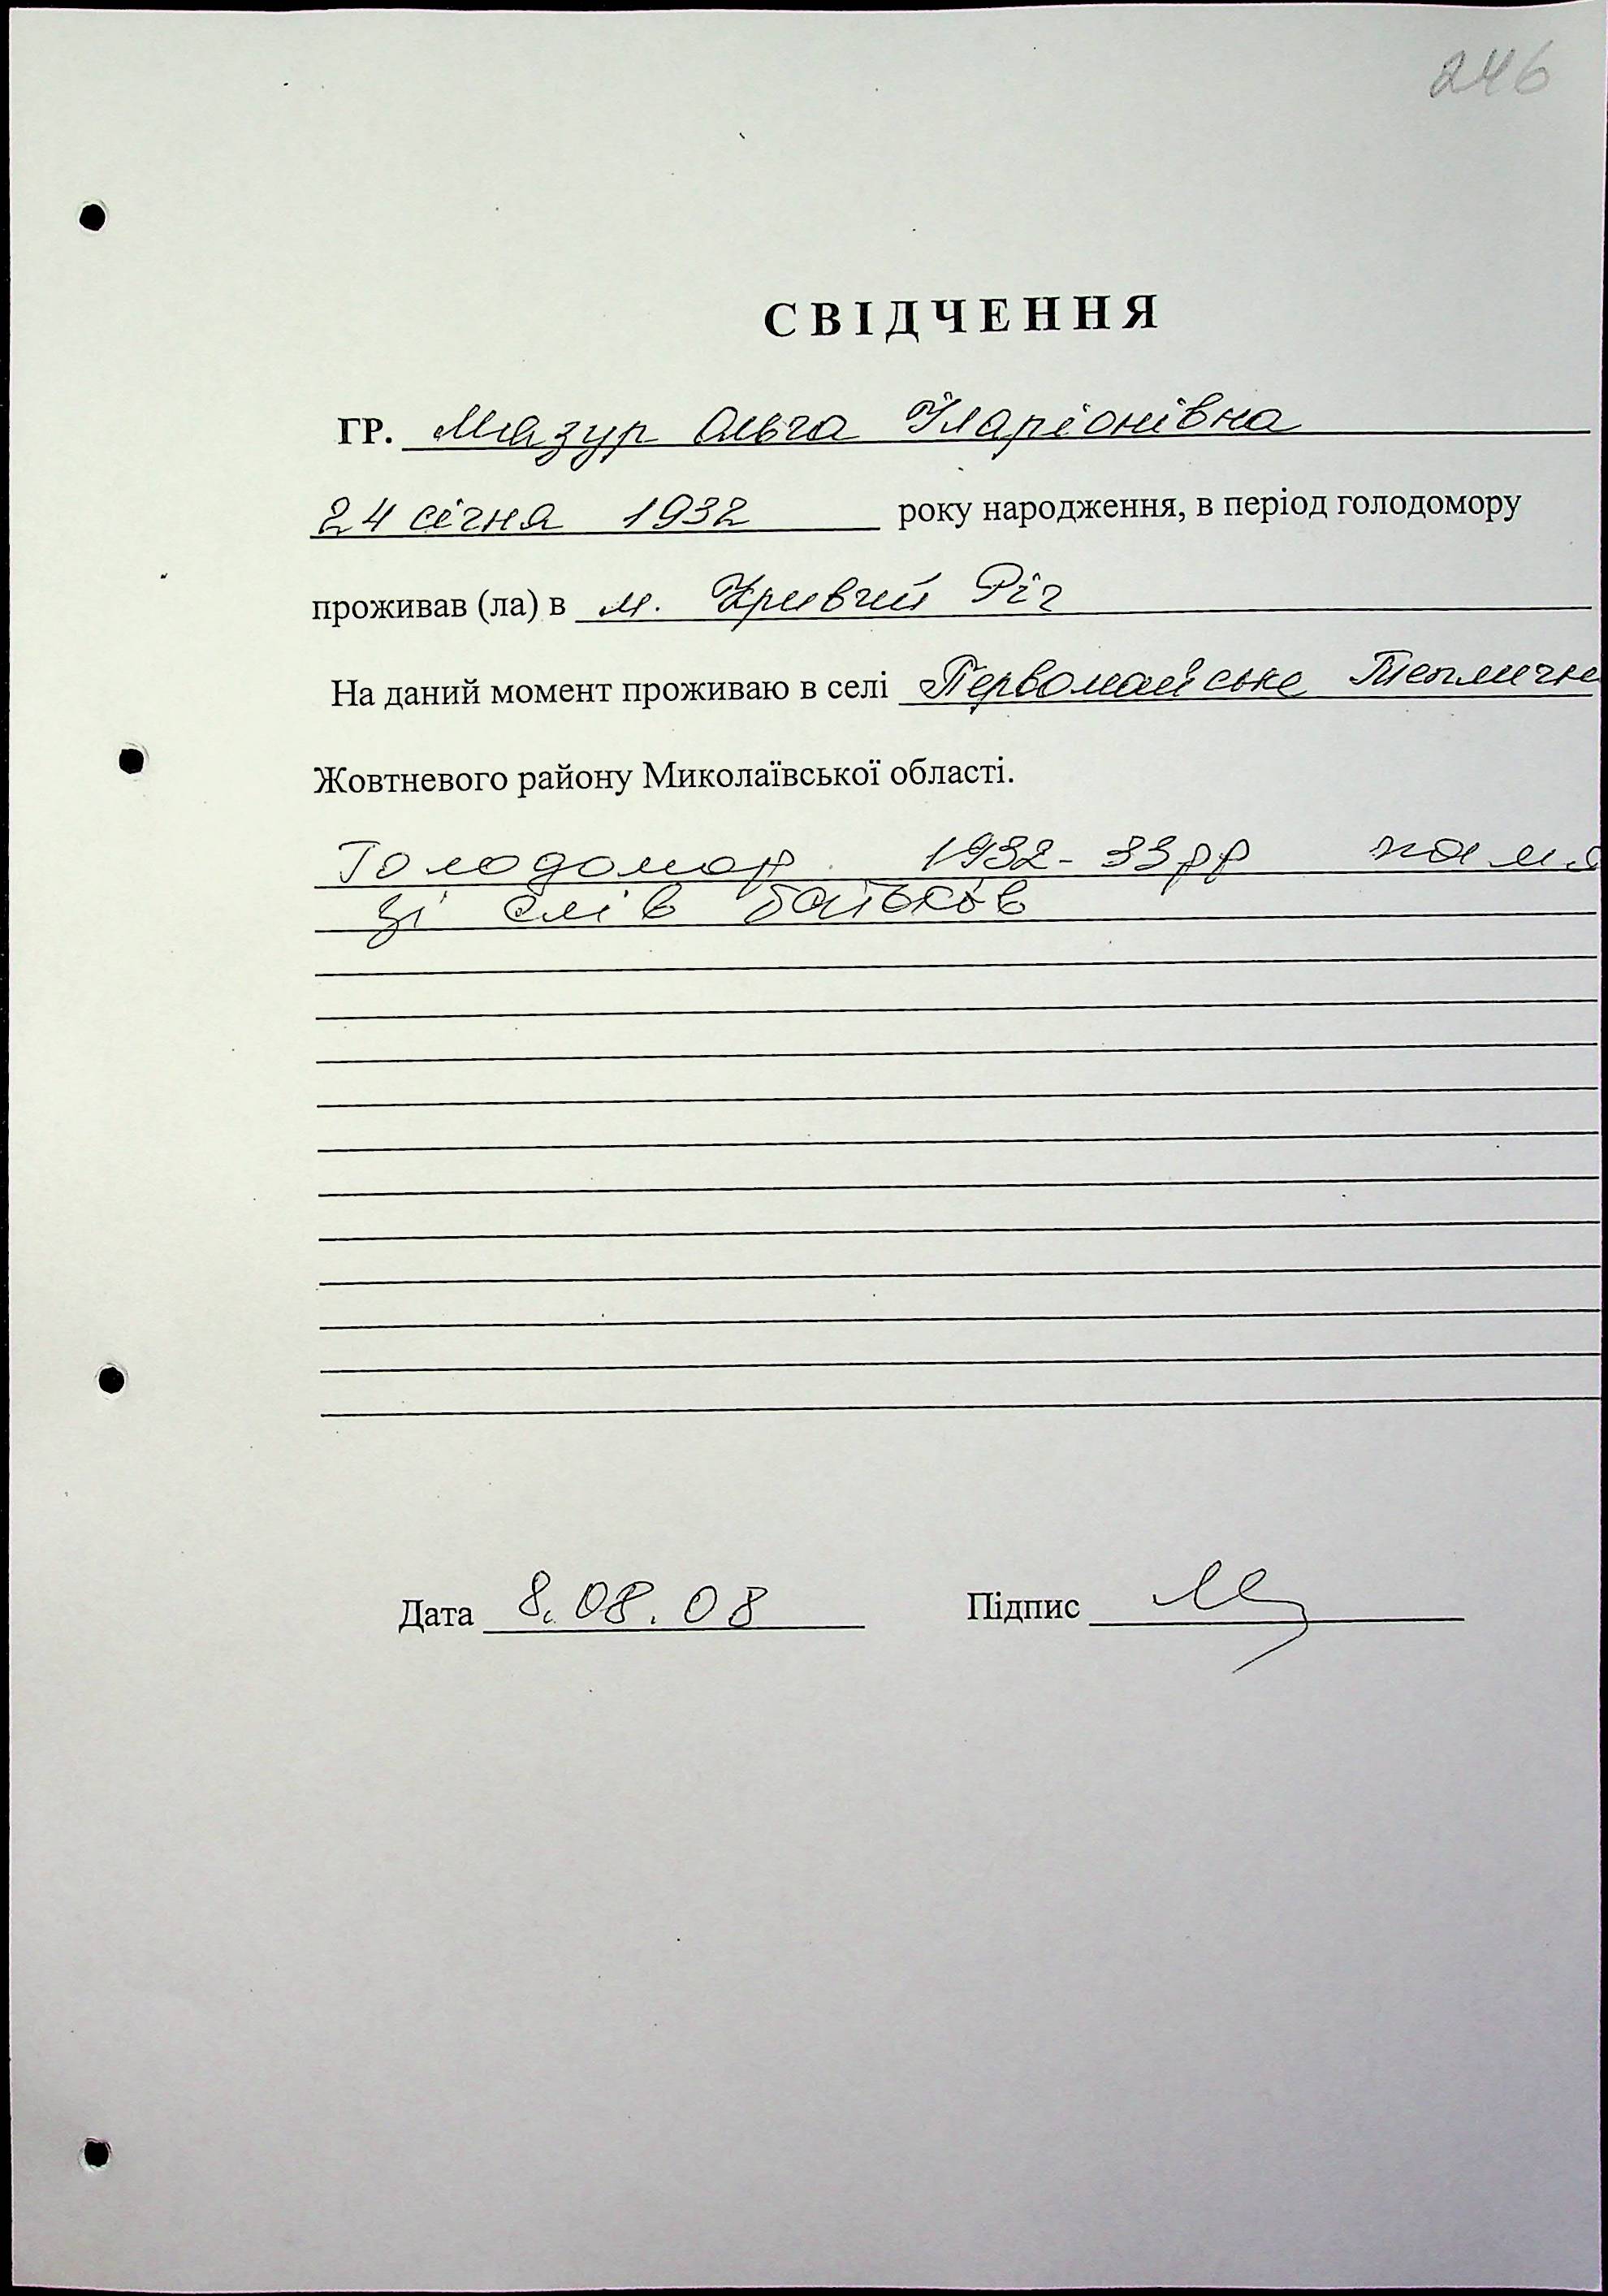 246
СВІДЧЕННЯ
ГР. Мазур Ольга Іларіонівна
24 січня 1932 року народження, в період голодомору
проживав (ла) в м. Кривий Ріг
На даний момент проживаю в селі Первомайське Тепличне
Жовтневого району Миколаївської області.
Голодомор 1932-33рр
зі слів батьків
Дата 8.08.08 Підпис